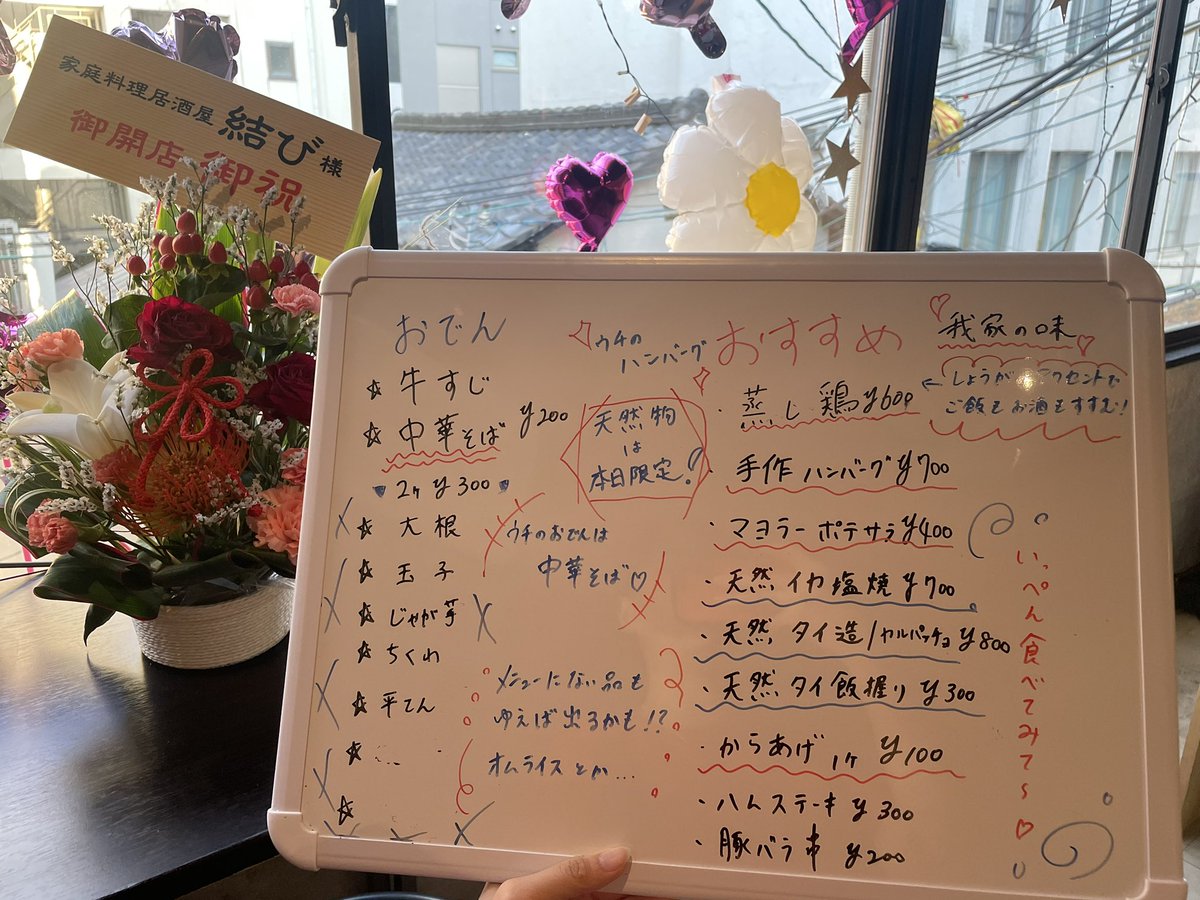 家庭料理居酒屋 結び様
御開店 御祝
おでん
☆ 牛すじ
☆ 中華そば ¥200
♥ 2ヶ ¥300 ♥
☆ 大根
☆ 玉子
☆ じゃが芋
☆ ちくわ
☆ 平てん
☆ ...
☆
ウチの
ハンバーグ
天然物
は
本日限定!
ウチのおでんは
中華そば♡
メニューにない品も
ゆえば出るかも!?
オムライスとか...
おすすめ
・蒸し鶏 ¥600
・手作ハンバーグ ¥700
・マヨラーポテサラ ¥400
・天然イカ塩焼 ¥700
・天然タイ造/カルパッチョ ¥800
・天然タイ飯握り ¥300
・からあげ 1ヶ ¥100
・ハムステーキ ¥300
・豚バラ串 ¥200
♡我家の味♡
←しょうががアクセントで
ご飯もお酒もすすむ!
いっぺん食べてみて〜♡